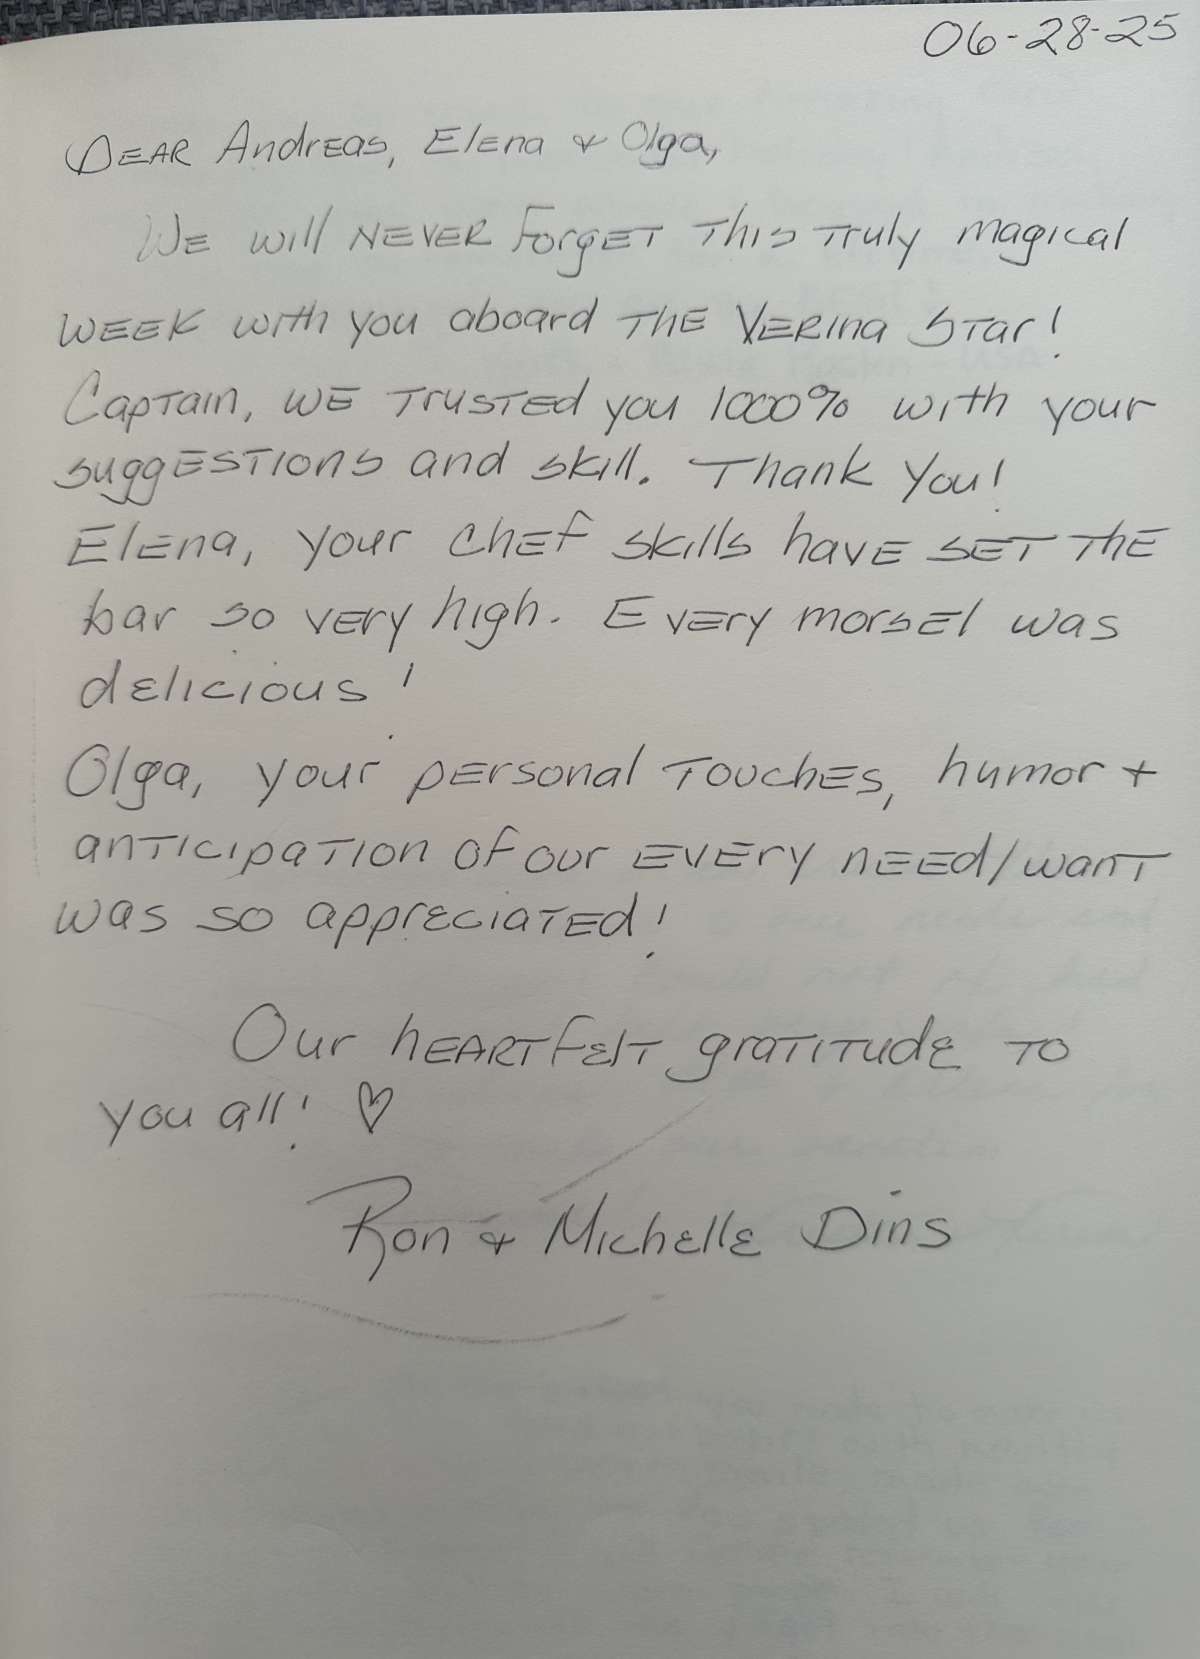 06-28-25
Dear Andreas, Elena & Olga,
We will never forget this truly magical
week with you aboard the Verina Star!
Captain, we trusted you 1000% with your
suggestions and skill. Thank you!
Elena, your chef skills have set the
bar so very high. Every morsel was
delicious!
Olga, your personal touches, humor +
anticipation of our every need/want
was so appreciated!
Our heartfelt gratitude to
you all! ♡
Ron & Michelle Dins